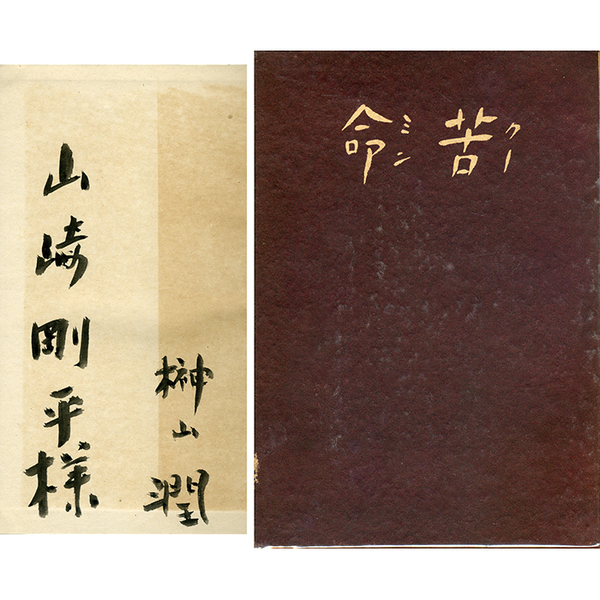 山崎剛平様
榊山潤
苦命
クーミン